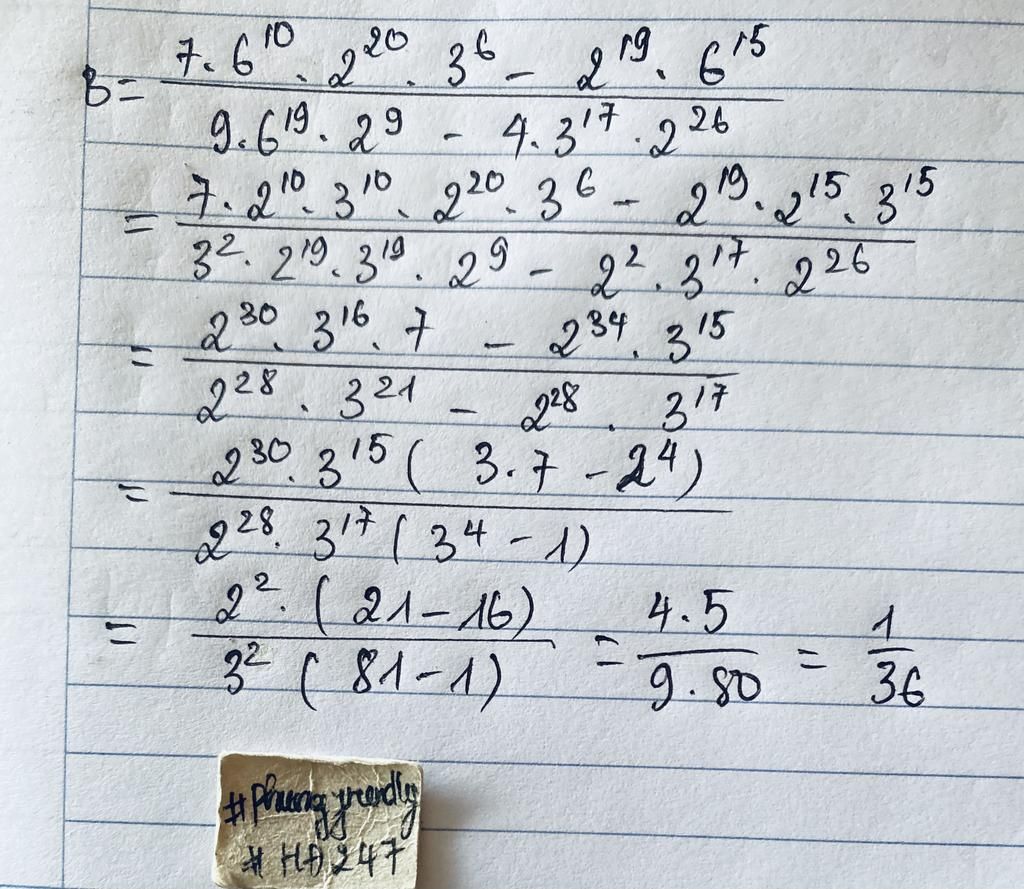 B = \frac{7 \cdot 6^{10} \cdot 2^{20} \cdot 3^{6} - 2^{19} \cdot 6^{15}}{9 \cdot 6^{19} \cdot 2^{9} - 4 \cdot 3^{17} \cdot 2^{26}}
= \frac{7 \cdot 2^{10} \cdot 3^{10} \cdot 2^{20} \cdot 3^{6} - 2^{19} \cdot 2^{15} \cdot 3^{15}}{3^{2} \cdot 2^{19} \cdot 3^{19} \cdot 2^{9} - 2^{2} \cdot 3^{17} \cdot 2^{26}}
= \frac{2^{30} \cdot 3^{16} \cdot 7 - 2^{34} \cdot 3^{15}}{2^{28} \cdot 3^{21} - 2^{28} \cdot 3^{17}}
= \frac{2^{30} \cdot 3^{15} ( 3 \cdot 7 - 2^{4} )}{2^{28} \cdot 3^{17} ( 3^{4} - 1 )}
= \frac{2^{2} \cdot ( 21 - 16 )}{3^{2} ( 81 - 1 )} = \frac{4 \cdot 5}{9 \cdot 80} = \frac{1}{36}
# HA247